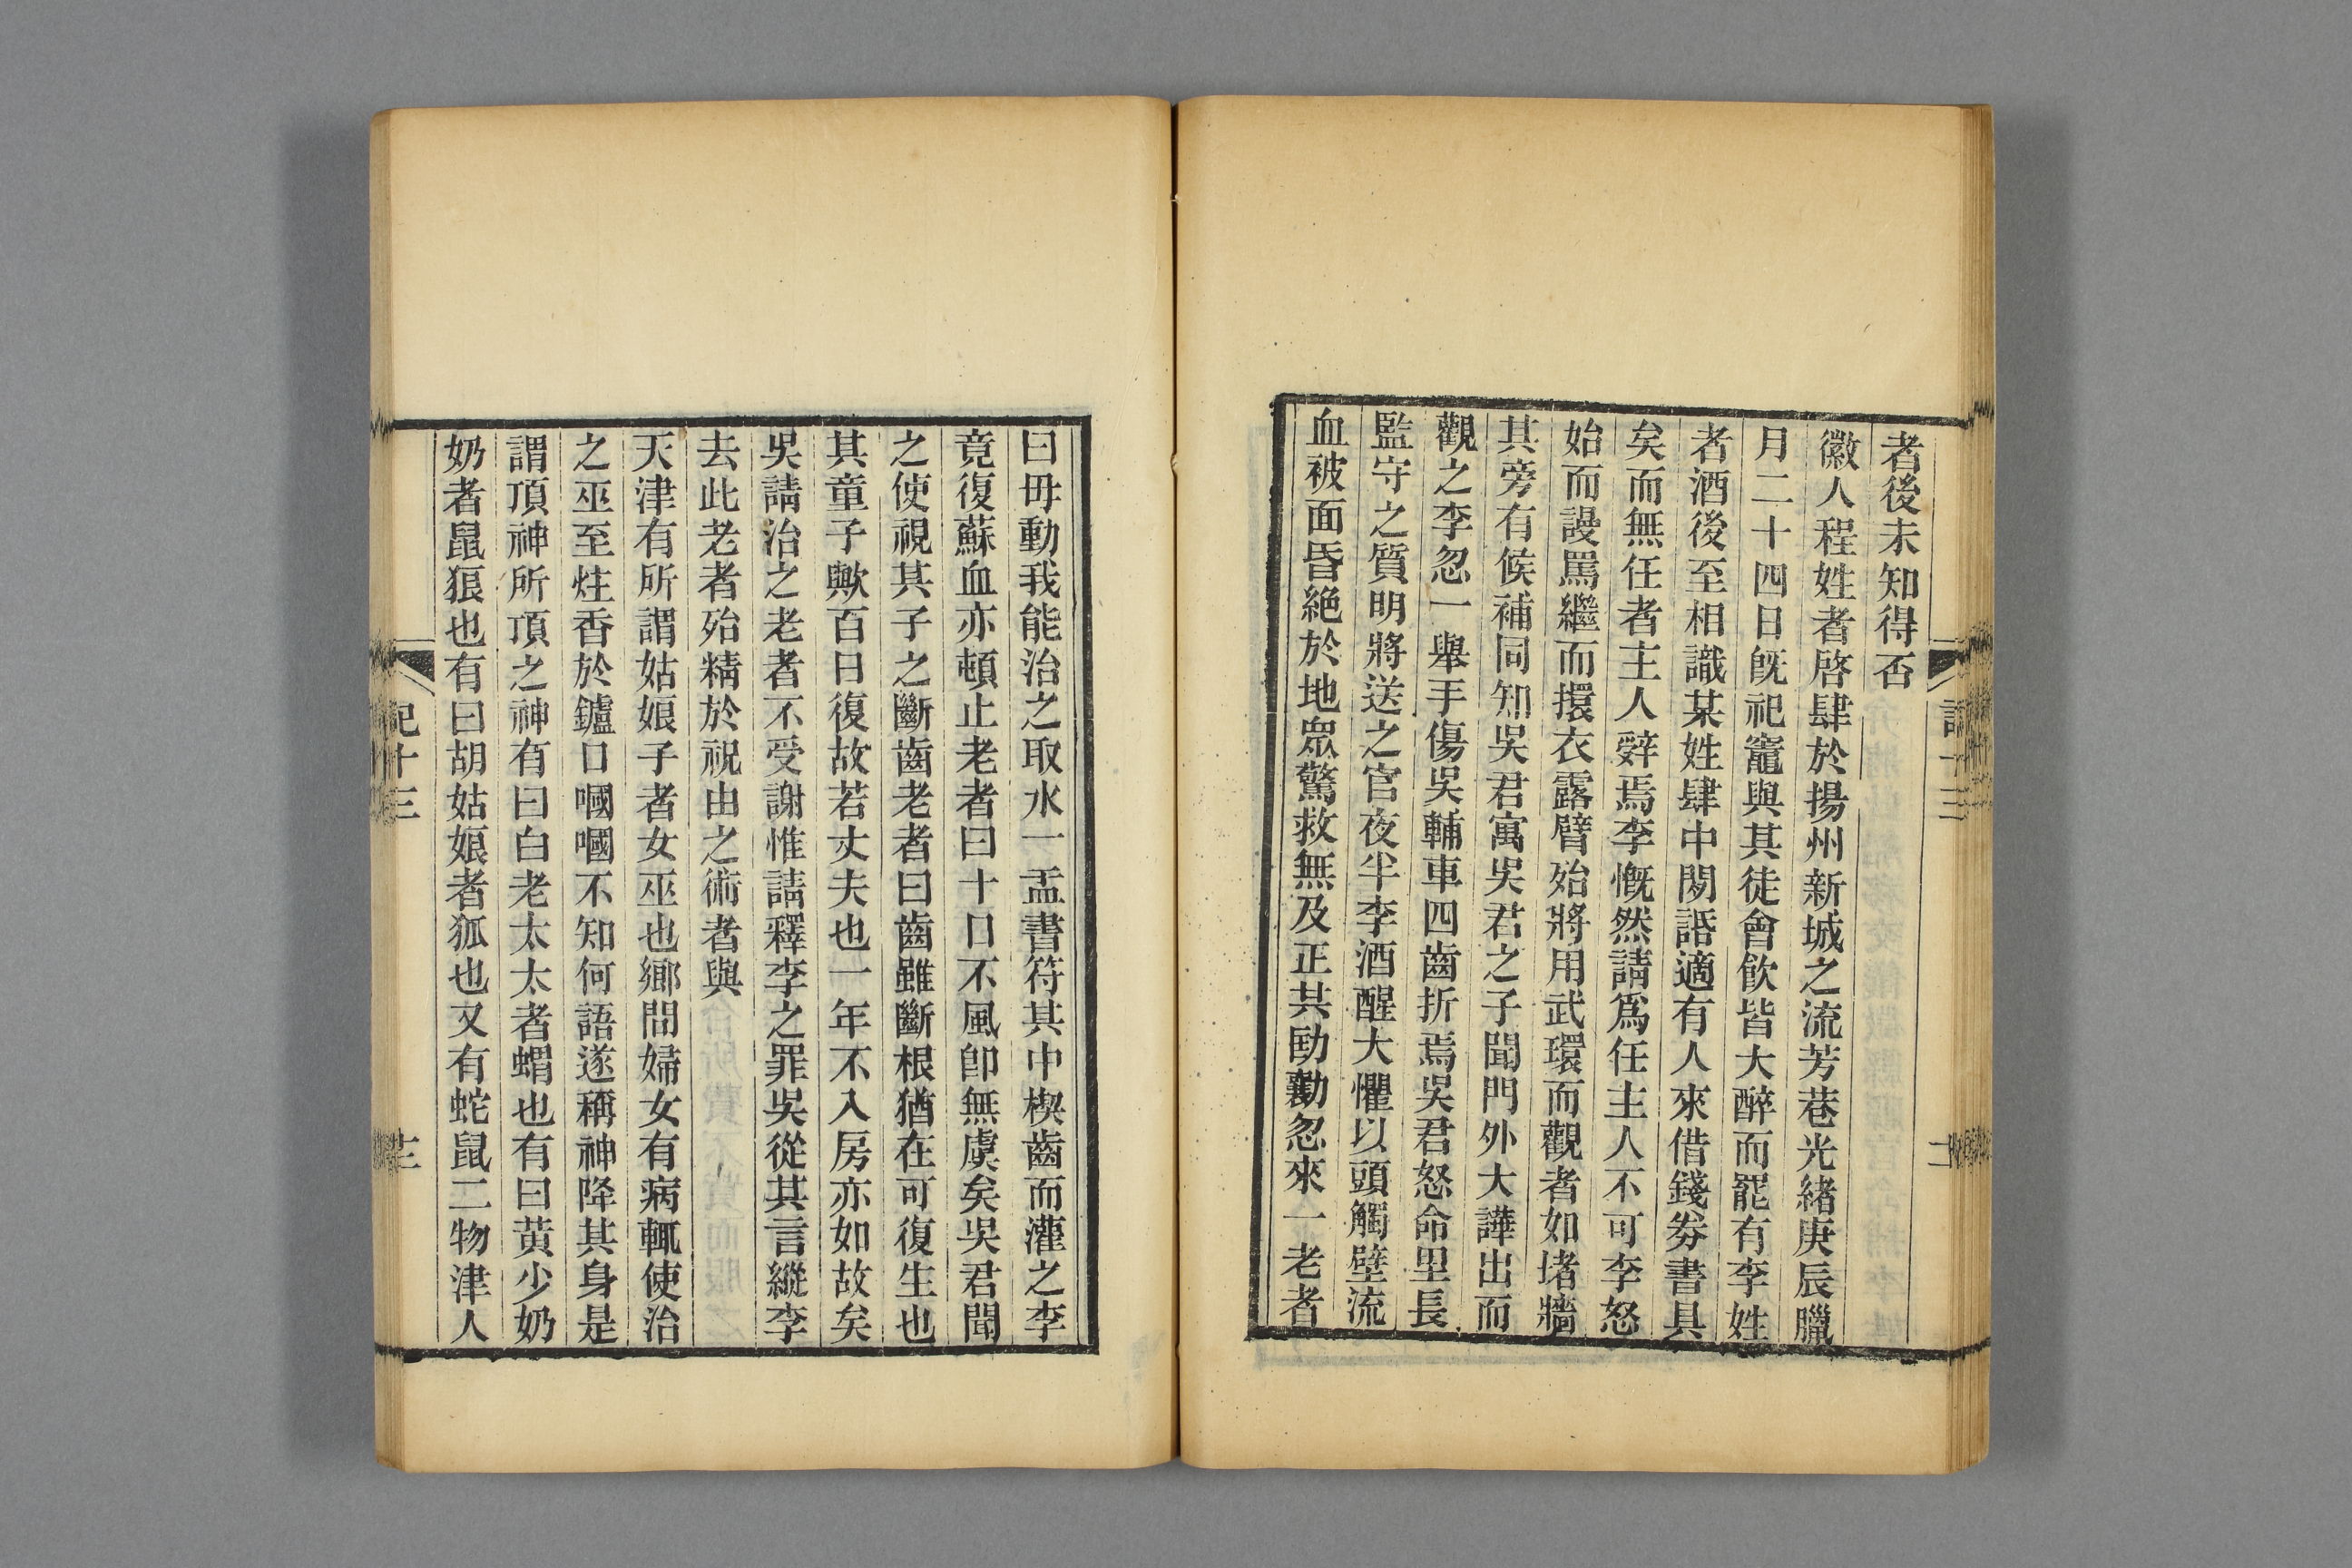 者後未知得否
徽人程姓者啓肆於揚州新城之流芳巷光緒庚辰臘
月二十四日既祀竈與其徒會飮皆大醉而罷有李姓
者酒後至相識某姓肆中閱話適有人來借錢券書具
矣而無任者主人辭焉李慨然請爲任主人不可李怒
始而謾罵繼而擐衣露臂殆將用武環而觀者如堵牆
其旁有候補同知吳君寓吳君之子聞門外大譁出而
觀之李忽一舉手傷吳輔車四齒折焉吳君怒命里長
監守之質明將送之官夜半李酒醒大懼以頭觸壁流
血被面昏絕於地眾驚救無及正其劻勷忽來一老者
曰毋動我能治之取水一盂書符其中楔齒而灌之李
竟復蘇血亦頓止老者曰十日不風卽無虞矣吳君聞
之使視其子之斷齒老者曰齒雖斷根猶在可復生也
其童子歟百日復故若丈夫也一年不入房亦如故矣
吳請治之老者不受謝惟請釋李之罪吳從其言縱李
去此老者殆精於祝由之術者與
天津有所謂姑娘子者女巫也鄉間婦女有病輒使治
之巫至炷香於鑪口嘓嘓不知何語遂稱神降其身是
謂頂神所頂之神有曰白老太太者蝟也有曰黃少奶
奶者鼠狼也有曰胡姑娘者狐也又有蛇鼠二物津人
記十三